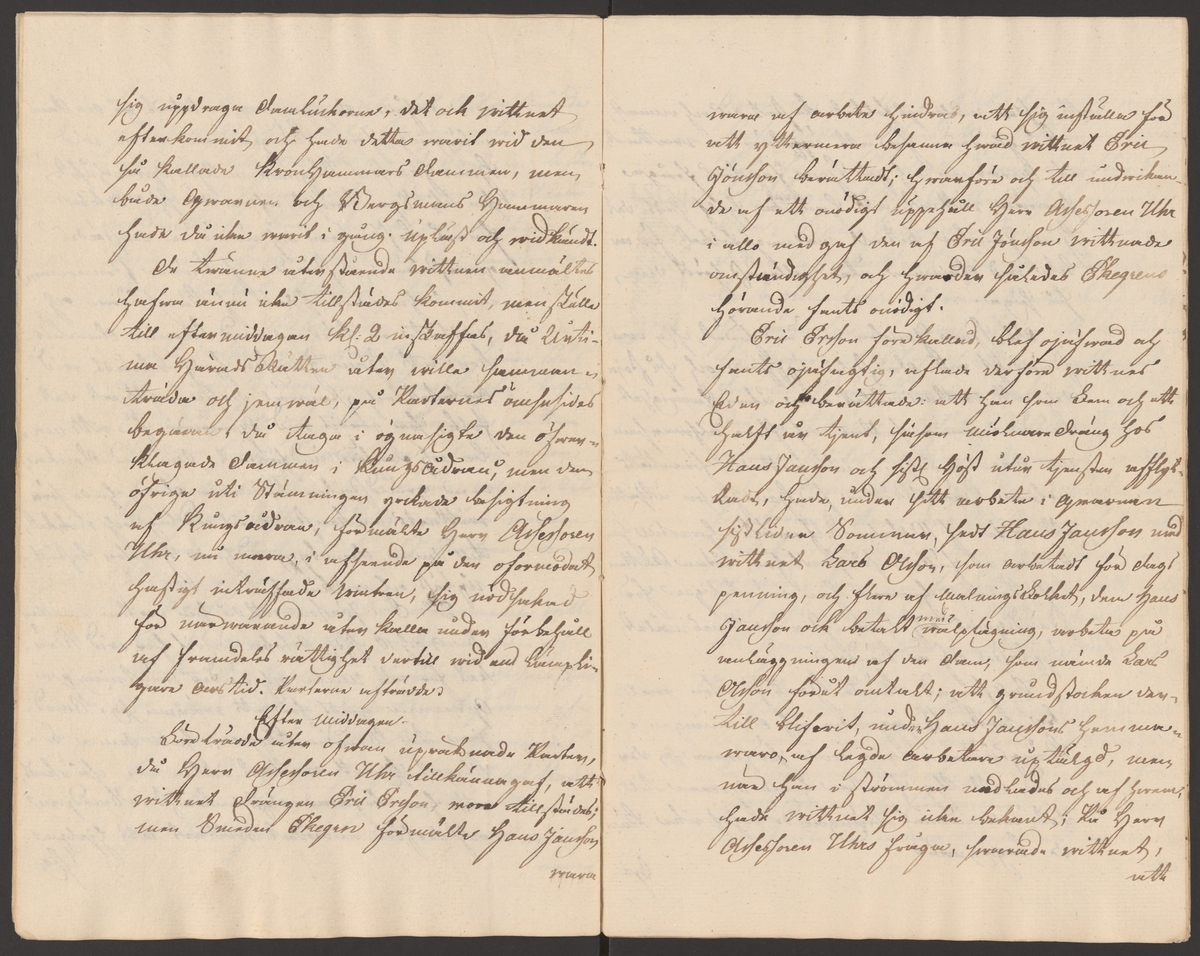 sig uppdraga Damluckorne, det ock wittnet
efterkommit och hade detta warit wid den
så kallade KronHammars Dammen, men
både Qwarnen och Bergsmans Hammaren
hade då icke warit i gång. Upläst och widkändt.
De twänne återstående wittnen anmältes
hafwa ännu icke tillstädes kommit, men skulle
till eftermiddagen kl: 2 inskaffas, då
Härads Rätten åter wille samman-
träda och jemwäl, på Parternes ömsesides
begäran, då taga i ögnasigte den öfwer-
klagade Dammen i Kungsådran, men den
öfriga uti Stämningen yrkade besigtning
af Kungsådran, förmälte Herr Assessoren
Uhr, nu mera, i afseende på den oformodat
hastigt inträffade wintren, sig nödsakad
för närwarande återkalla under förbehåll
af framdeles rättighet dertill wid en d lämpli-
gare årstid. Parterne afträdde.
Efter middagen.
Företrädde åter ofwan upräknade Parter,
då Herr Assessoren Uhr tillkännagaf, att
wittnet Drängen Eric Ersson, wore tillstädes;
men Smeden Skegren förmälte Hans Jansson
wara
wara af arbete hindrad, att sig inställa för
att yttermera besanna hwad wittnet Eric
Jönsson berättadt; hwarföre och till undwikan-
de af ett onödigt uppehåll Herr Assessoren Uhr
i allo medgaf den af Eric Jönsson wittnade
omständighet, och hwarder således Skegrens
hörande fants onödigt.
Eric Ersson förekallad, blef ojäfwad och
fants ojäfagtig, aflade derföre wittnes
Eden och berättade: att han som Ett och ett
halft år tjent, såsom mölnaredräng hos
Hans Jansson och sistl. Höst utur tjensten afflyt-
tadt, hade, under sitt arbete i Qwarnen
sistlidne Sommar, sedt Hans Jansson med
wittnet Lars Olsson, som arbetadt för dags
penning, och flere af Malningsfolket, dem Hans
Jansson ock betalt med wälplägning, arbeta på
anläggningen af den Dam, som nämde Lars
Olsson förut omtalt; att grundstocken der-
till blifwit, under Hans Janssons hemma-
waro, af legde arbetare uptälgd, men
när han i strömmen nedlades och af hwem,
hade wittnet sig icke bekant; På Herr
Assessoren Uhrs fråga, swarade wittnet,
att